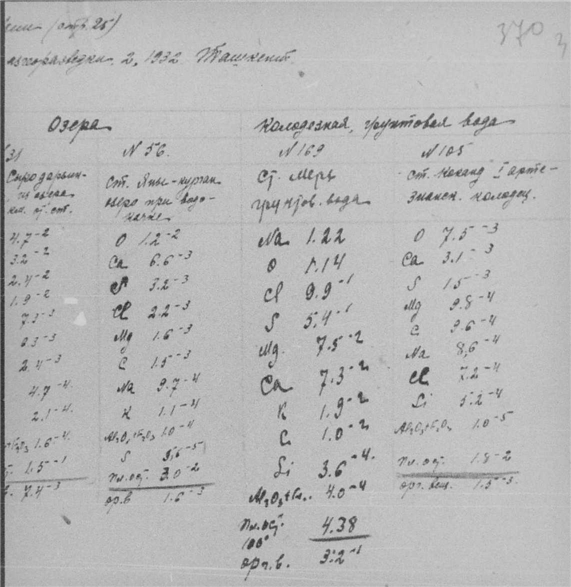 (стр. 25)
370
2, 1932 Ташкент.
Озера
Колодезная, грунтовая вода
31
N 56.
N 169
N 105
ст. Яны-курган
Ст. Мерв
ст. Коканд I арте-
озеро при водо-
грунтов. вода
зианск. колодец.
качке
4.7⁻²
O 1.2⁻²
Na 1.22
O 7.5⁻³
3.2⁻²
Ca 6.6⁻³
O 1.14
Ca 3.1⁻³
2.4⁻²
S 3.2⁻³
Cl 9.9⁻¹
S 1.5⁻³
1.9⁻²
Cl 2.2⁻³
S 5.4⁻¹
Mg 9.8⁻⁴
Mg 1.6⁻³
Mg. 7.5⁻²
C 9.6⁻⁴
2.4⁻³
C 1.5⁻³
Ca 7.3⁻²
Na 8,6⁻⁴
4.7⁻⁴
Na 9.7⁻⁴
K 1.9⁻²
Cl 7.2⁻⁴
2.1⁻⁴
K 1.1⁻⁴
C 1.0⁻²
Si 5.2⁻⁴
1.6⁻⁴
Al₂O₃+Fe₂O₃ 1.0⁻⁴
Si 3.6⁻⁴
Al₂O₃+Fe₂O₃ 1.0⁻⁵
1.5⁻¹
Пл. ост. 3.0⁻²
Al₂O₃+Fe.. 4.0⁻⁴
Пл. ост. 1.8⁻²
7.4⁻³
ор. в 1.6⁻³
орг. вещ. 1.5⁻³
Пл. ост. 4.38
100°
орг. в. 3.2⁻¹